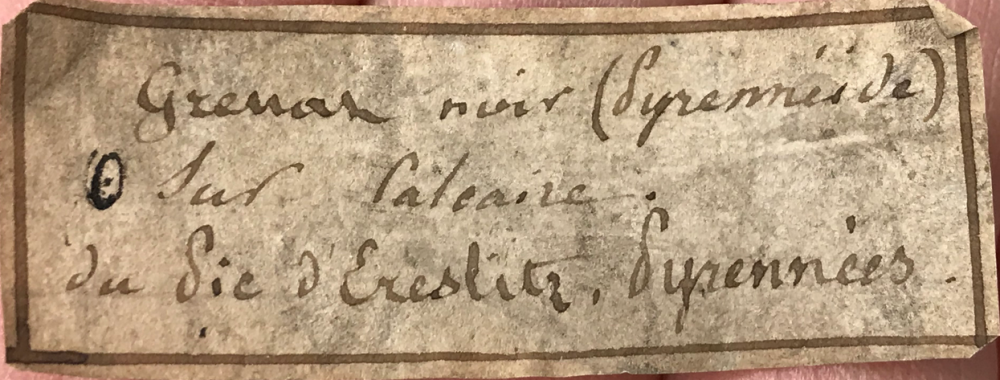 Grenat noir (Pyrenneïde)
O Sur Calcaire.
du Pic d'Ereslitz, Pyrennées.